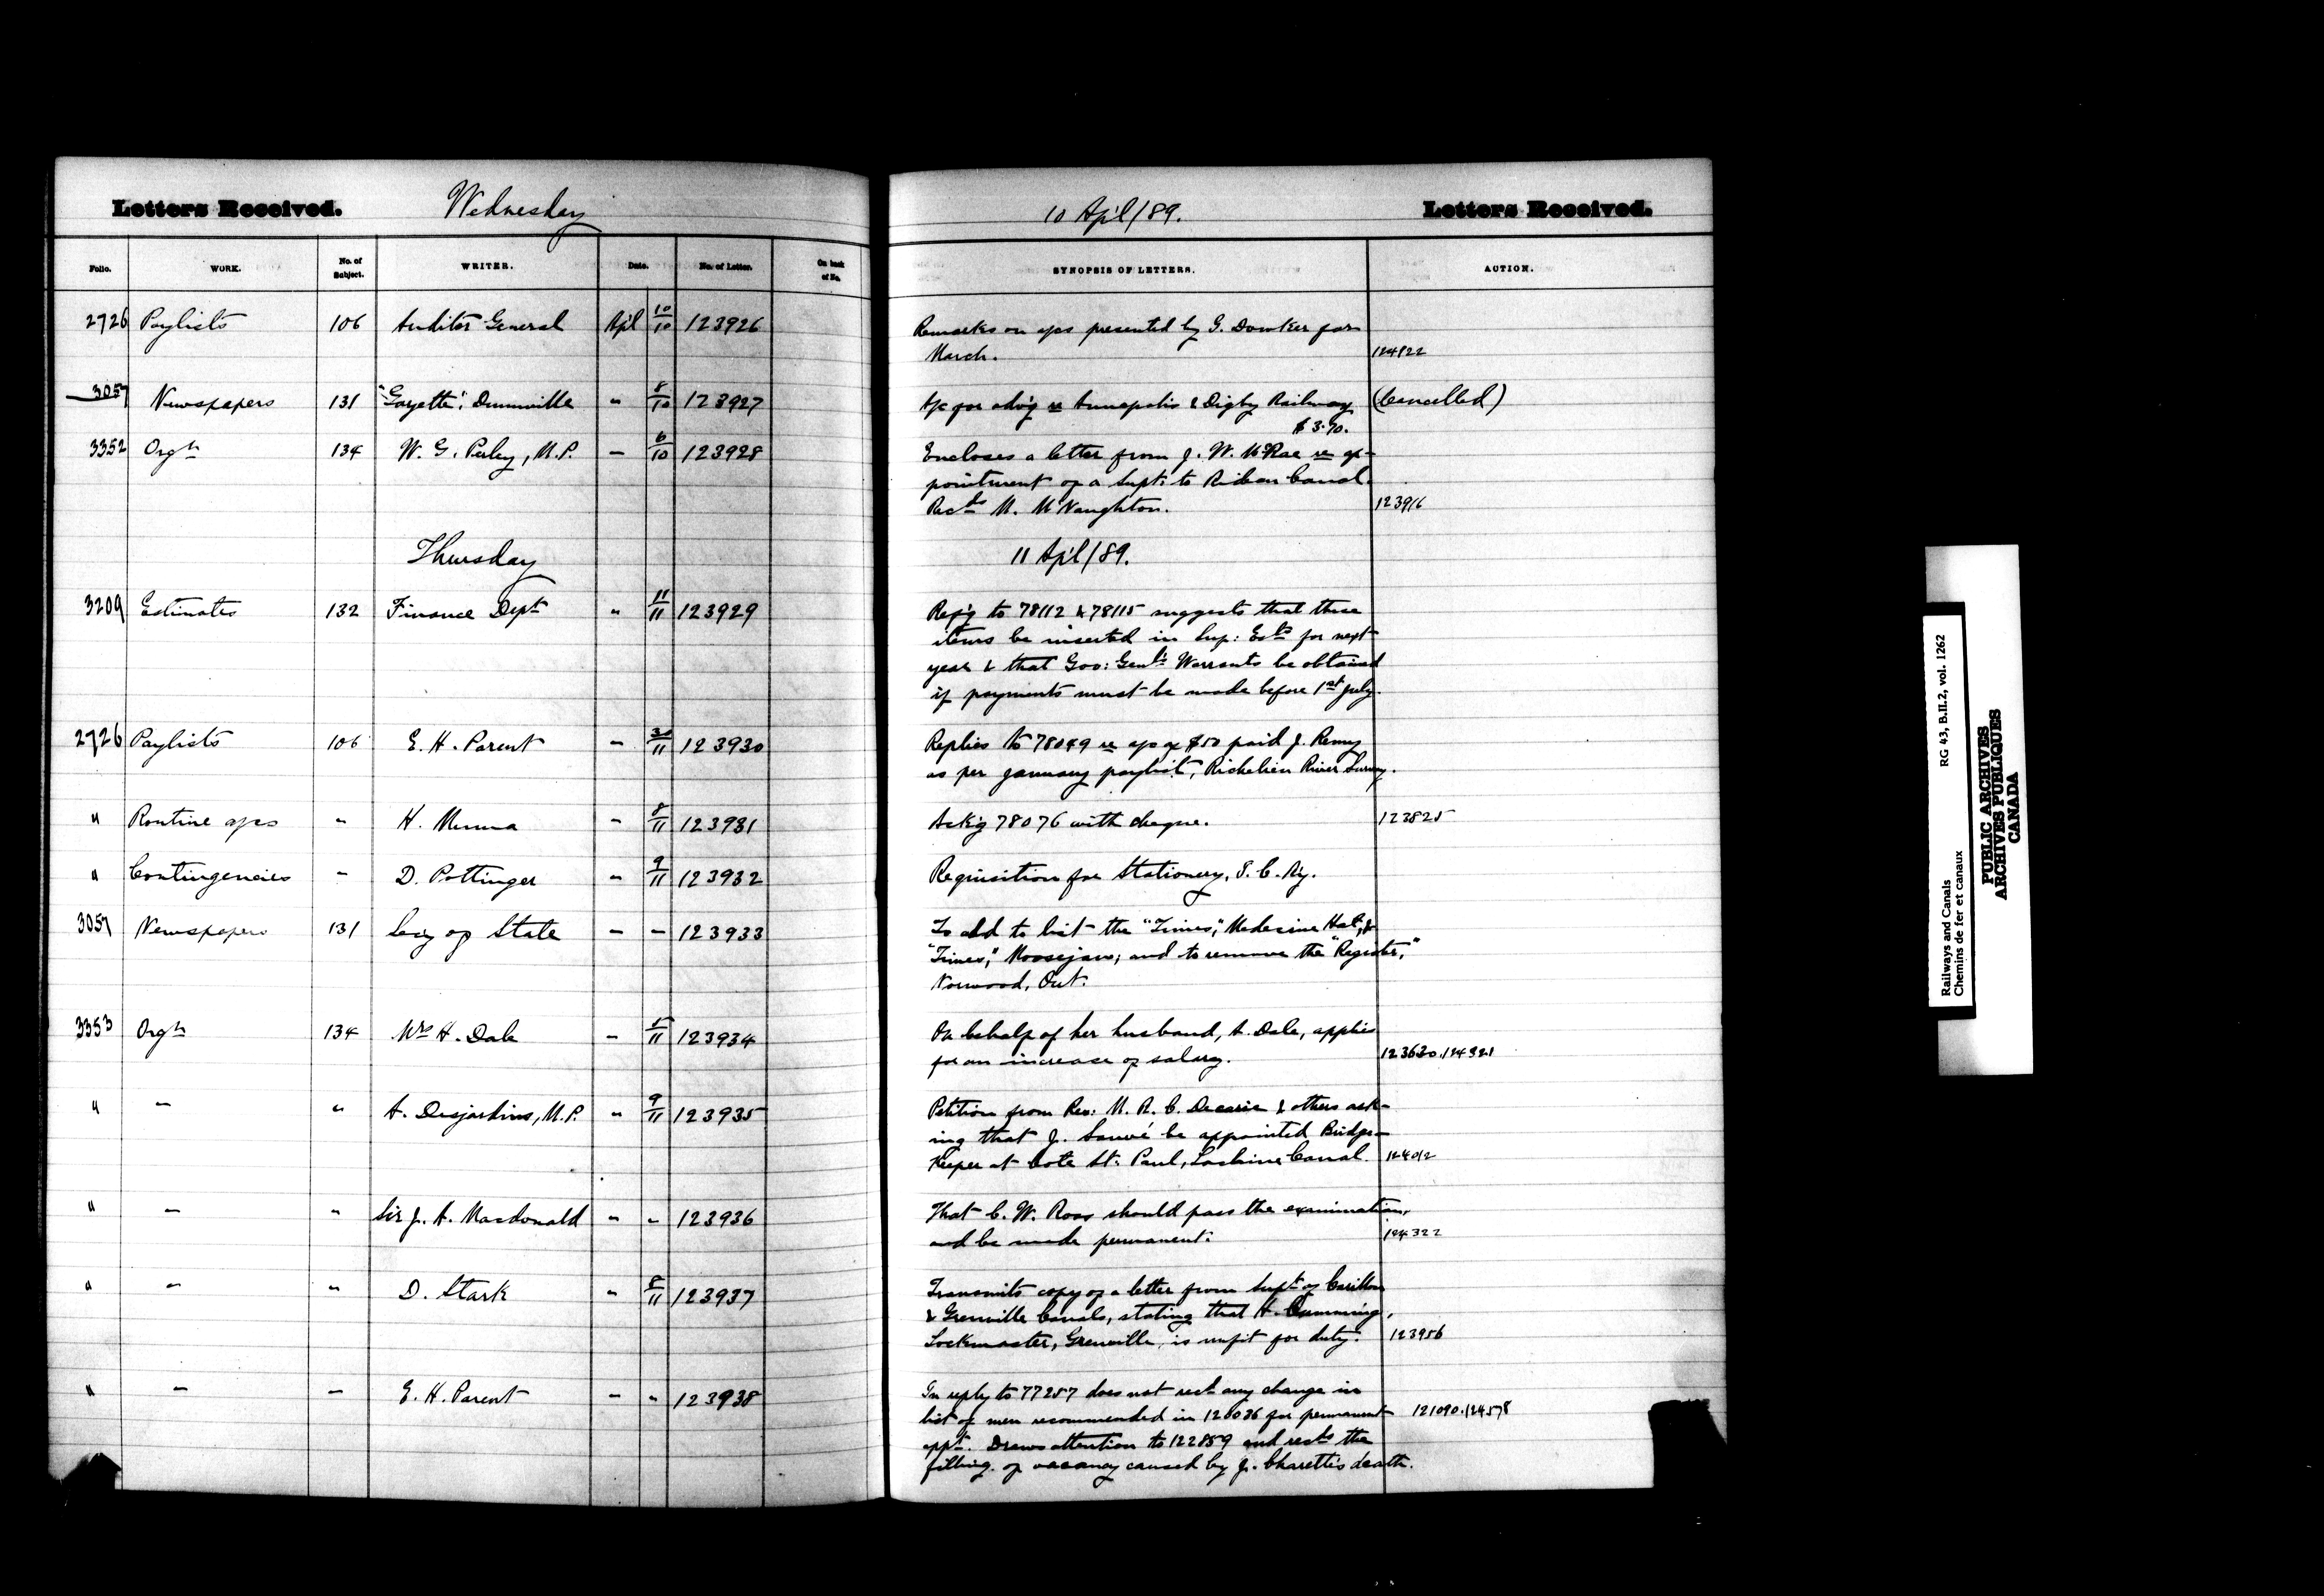 Letters Received. Wednesday 10 Apl/89. Letters Received.
Folio. WORK. No. of Subject. WRITER. Date. No. of Letter. On back of No. SYNOPSIS OF LETTERS. ACTION.
2726 Paylists 106 Auditor General Apl 10/10 123926 Remarks on a/cs presented by G. Dowker for
March. 124822
3057 Newspapers 131 "Gazette", Dunnville " 8/10 123927 A/c for advg re Annapolis & Digby Railway (Cancelled)
$3.90.
3352 Orgn 134 W. G. Perley, M.P. " 6/10 123928 Encloses a letter from J. W. McRae re ap-
pointment of a Supt. to Rideau Canal.
Recds M. McNaughton. 123916
Thursday 11 Apl/89.
3209 Estimates 132 Finance Dept " 11/11 123929 Refg to 78112 & 78115 suggests that these
items be inserted in Sup: Ests for next
year & that Gov: Genl's Warrants be obtained
if payments must be made before 1st July.
2726 Paylists 106 E. H. Parent " 30/11 123930 Replies to 78049 re a/c of $50 paid J. Remy
as per January paylist, Richelieu River Survey.
" Routine a/cs " H. 8/11 123931 Ackg 78076 with cheque. 123825
" Contingencies " D. Pottinger " 9/11 123932 Requisition for Stationery, I. C. Ry.
3057 Newspapers 131 Secy of State " " 123933 To add to list the "Times", Medecine Hat, &
"Times," Moosejaw; and to remove the "Register,"
Norwood, Ont.
3353 Orgn 134 Mrs H. Dale " 5/11 123934 On behalf of her husband, A. Dale, applies
for an increase of salary. 123630.124321
" " " A. Desjardins, M.P. " 9/11 123935 Petition from Rev: M. R. C. Decarie & others ask-
ing that J. Sauvé be appointed Bridge-
Keeper at Cote St. Paul, Lachine Canal. 124012
" " " Sir J. A. Macdonald " " 123936 That C. W. Ross should pass the examination,
and be made permanent. 124322
" " " D. Stark " 8/11 123937 Transmits copy of a letter from Supt of Carillon
& Grenville Canals, stating that H. Cumming,
Lockmaster, Grenville, is unfit for duty. 123956
" " " E. H. Parent " " 123938 In reply to 77257 does not recd any change in
list of men recommended in 120036 for permanent 121090.124578
appt. Draws attention to 122859 and recds the
filling of vacancy caused by J. Charette's death.
Railways and Canals RG 43, B.II.2, vol. 1262
Chemins de fer et canaux
PUBLIC ARCHIVES
ARCHIVES PUBLIQUES
CANADA